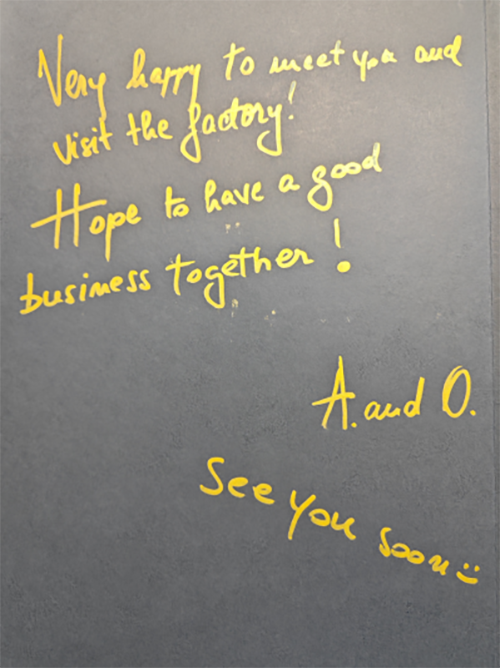 Very happy to meet you and
visit the factory!
Hope to have a good
business together!
A. and O.
See you soon :)